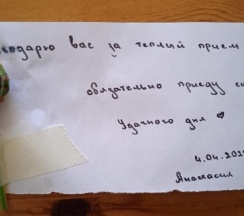 вас за теплый прием
обязательно приеду
Удачного дня
4.04.201
Анастасия